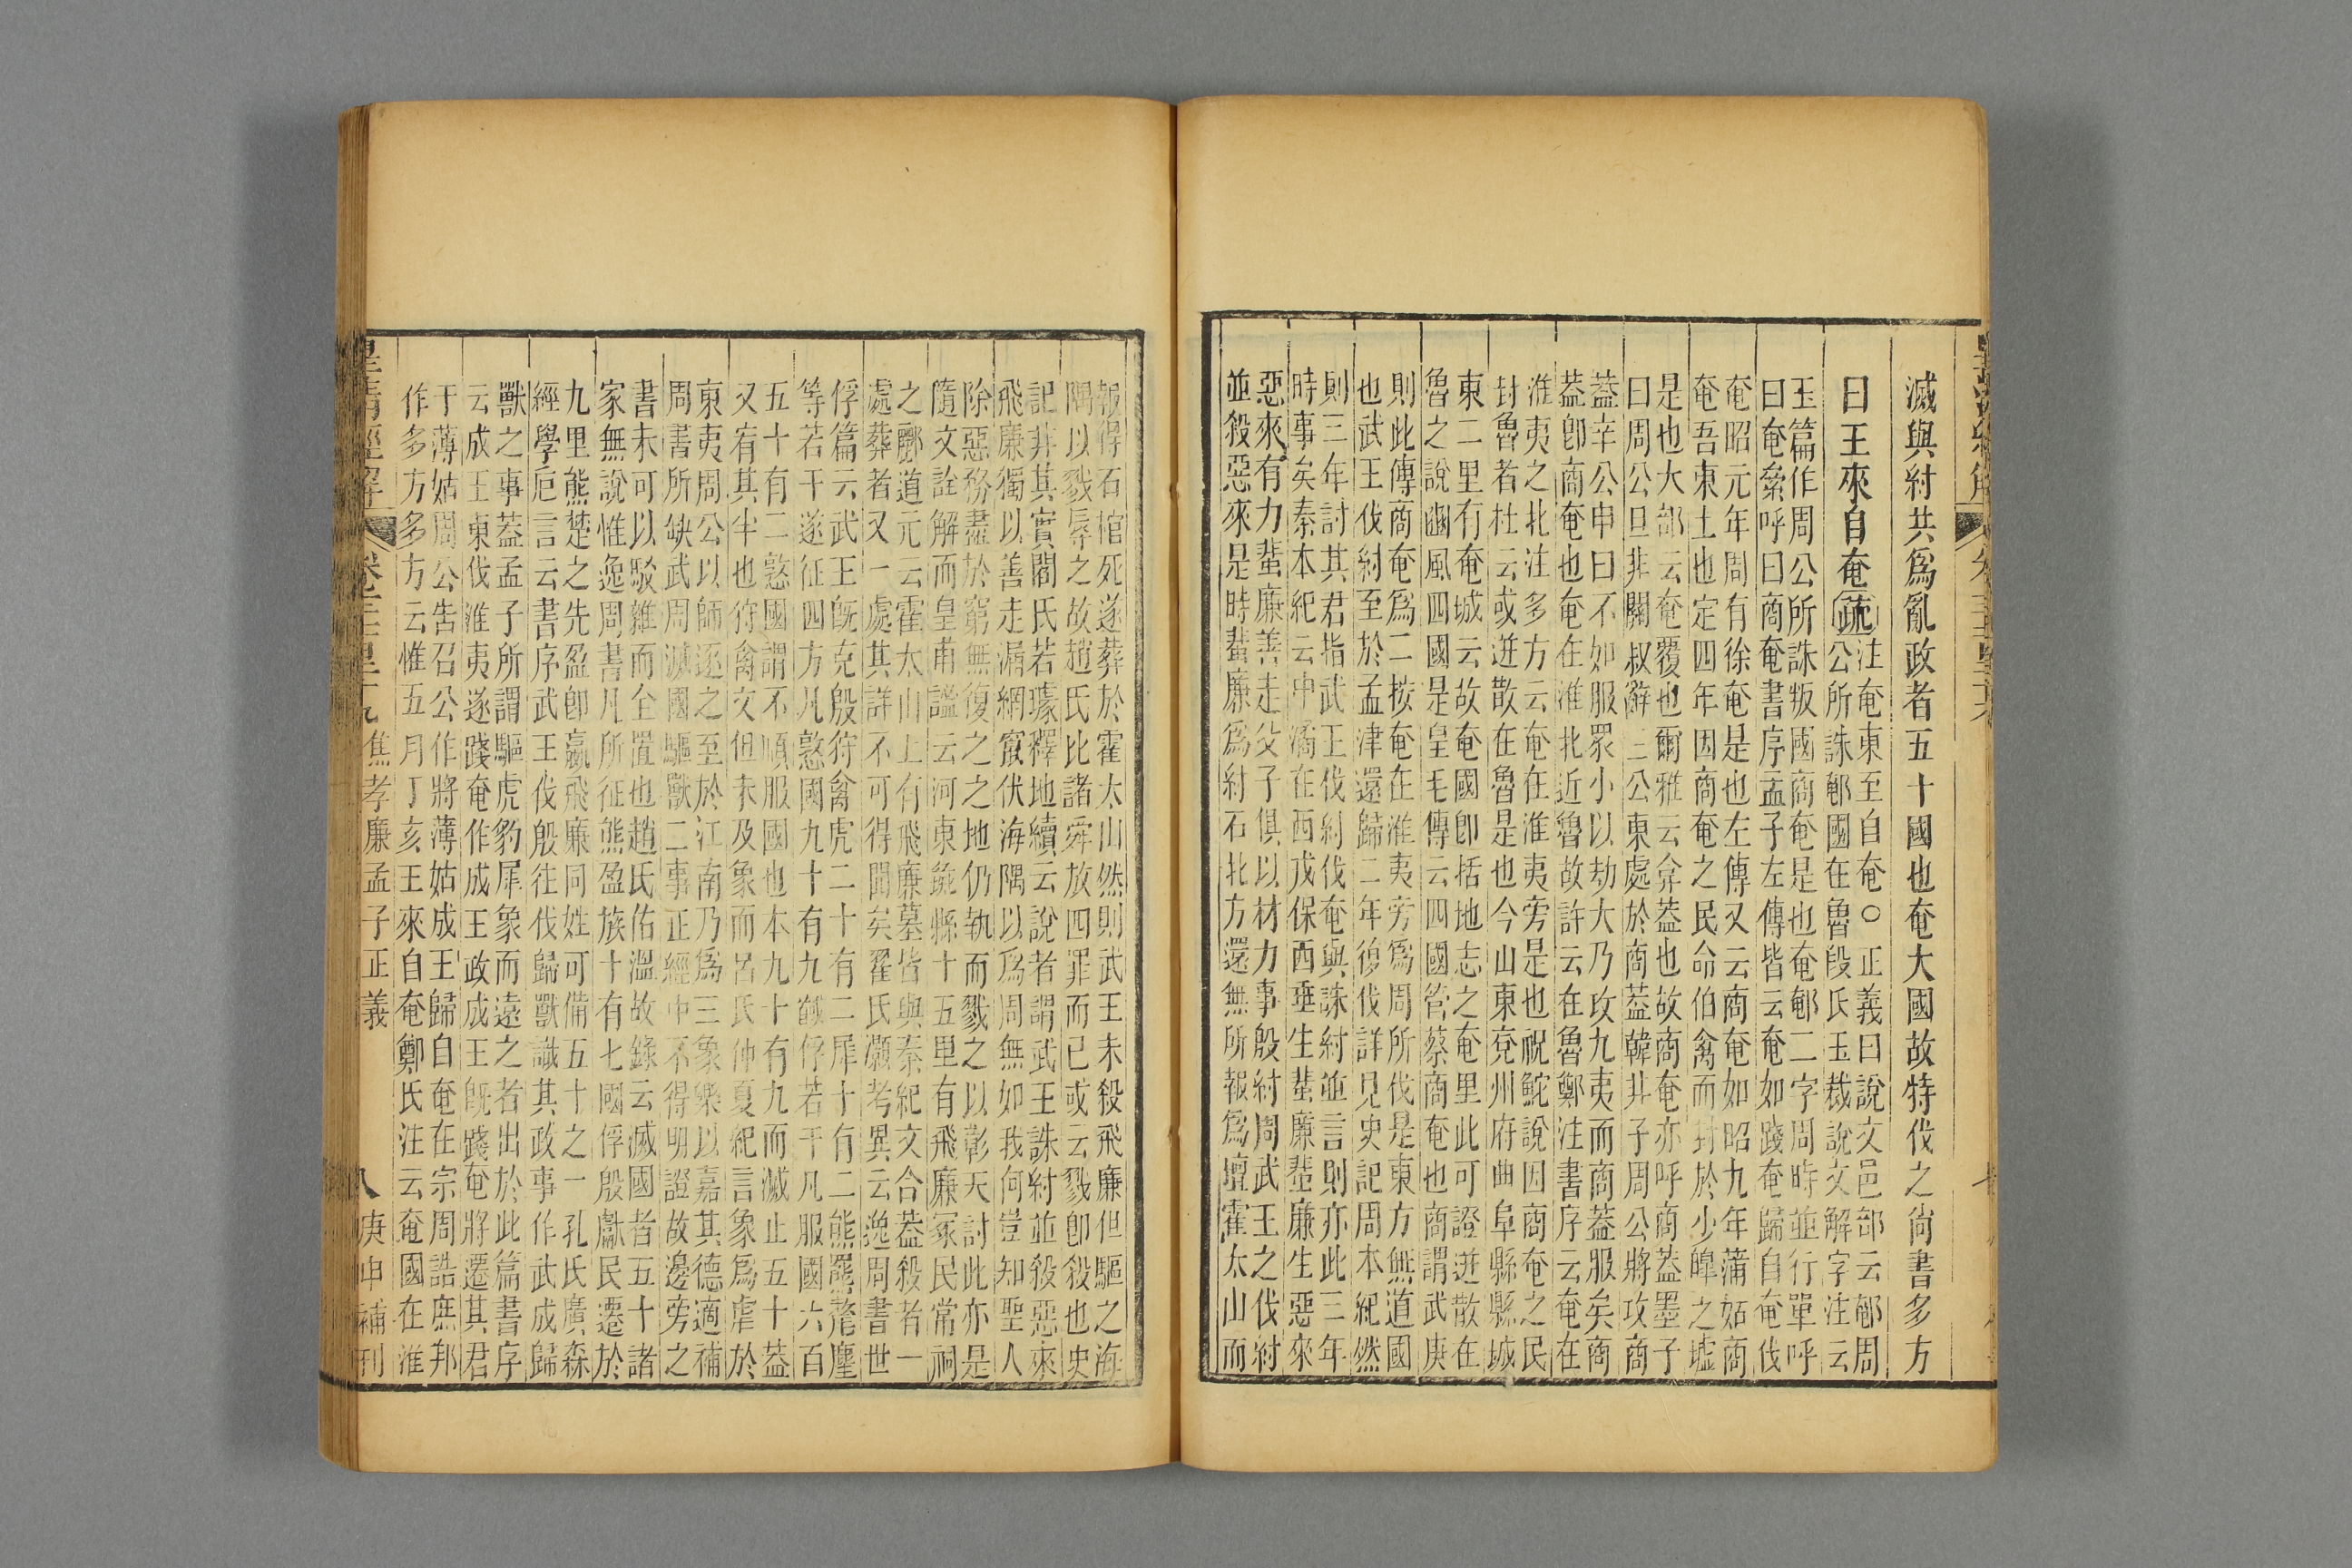 滅與紂共爲亂政者五十國也奄大國故特伐之尙書多方
曰王來自奄疏
注奄東至自奄○正義曰說文邑部云𨛭周
公所誅𨛭國在魯段氏玉裁說文解字注云
玉篇作周公所誅叛國商奄是也奄𨛭二字周時並行單呼
曰奄絫呼曰商奄書序孟子左傳皆云奄如踐奄歸自奄伐
奄昭元年周有徐奄是也左傳又云商奄如昭九年蒲姑商
奄吾東土也定四年因商奄之民命伯禽而封於少皥之墟
是也大部云奄覆也爾雅云弇葢也故商奄亦呼商葢墨子
曰周公旦非關叔辭三公東處於商葢韓非子周公將攻商
葢辛公申曰不如服眾小以劫大乃攻九夷而商葢服矣商
葢卽商奄也奄在淮北近魯故許云在魯鄭注書序云奄在
淮夷之北注多方云奄在淮夷旁是也祝鮀說因商奄之民
封魯者杜云或迸散在魯是也今山東兗州府曲阜縣縣城
東二里有奄城云故奄國卽括地志之奄里此可證迸散在
魯之說豳風四國是皇毛傳云四國管蔡商奄也商謂武庚
則此傳商奄爲二按奄在淮夷旁爲周所伐是東方無道國
也武王伐紂至於孟津還歸二年復伐詳見史記周本紀然
則三年討其君指武王伐紂伐奄與誅紂並言則亦此三年
時事矣秦本紀云中潏在西戎保西垂生蜚廉蜚廉生惡來
惡來有力蜚廉善走父子俱以材力事殷紂周武王之伐紂
並殺惡來是時蜚廉爲紂石北方還無所報爲壇霍太山而
報得石棺死遂葬於霍太山然則武王未殺飛廉但驅之海
隅以戮辱之故趙氏比諸舜放四罪而已或云戮卽殺也史
記非其實閻氏若璩釋地續云說者謂武王誅紂並殺惡來
飛廉獨以善走漏網竄伏海隅以爲周無如我何豈知聖人
除惡務盡於窮無復之之地仍執而戮之以彰天討此亦是
隨文詮解而皇甫謐云河東彘縣十五里有飛廉冢民常祠
之酈道元云霍太山上有飛廉墓皆與秦紀文合葢殺者一
處葬者又一處其詳不可得聞矣翟氏灝考異云逸周書世
俘篇云武王旣克殷狩禽虎二十有二犀十有二熊羆氂麈
等若干遂征四方凡憝國九十有九馘俘若干凡服國六百
五十有二憝國謂不順服國也本九十有九而滅止五十葢
又宥其半也狩禽文但未及象而呂氏仲夏紀言象爲虐於
東夷周公以師逐之至於江南乃爲三象樂以嘉其德適補
周書所缺武周滅國驅獸二事正經中不得明證故邊旁之
書未可以駁雜而全置也趙氏佑溫故錄云滅國者五十諸
家無說惟逸周書凡所征熊盈族十有七國俘殷獻民遷於
九里熊楚之先盈卽嬴飛廉同姓可備五十之一孔氏廣森
經學卮言云書序武王伐殷往伐歸獸識其政事作武成歸
獸之事葢孟子所謂驅虎豹犀象而遠之者出於此篇書序
云成王東伐淮夷遂踐奄作成王政成王旣踐奄將遷其君
于薄姑周公告召公作將薄姑成王歸自奄在宗周誥庶邦
作多方多方云惟五月丁亥王來自奄鄭氏注云奄國在淮
皇清經解
焦孝廉孟子正義
八
庚申補刊